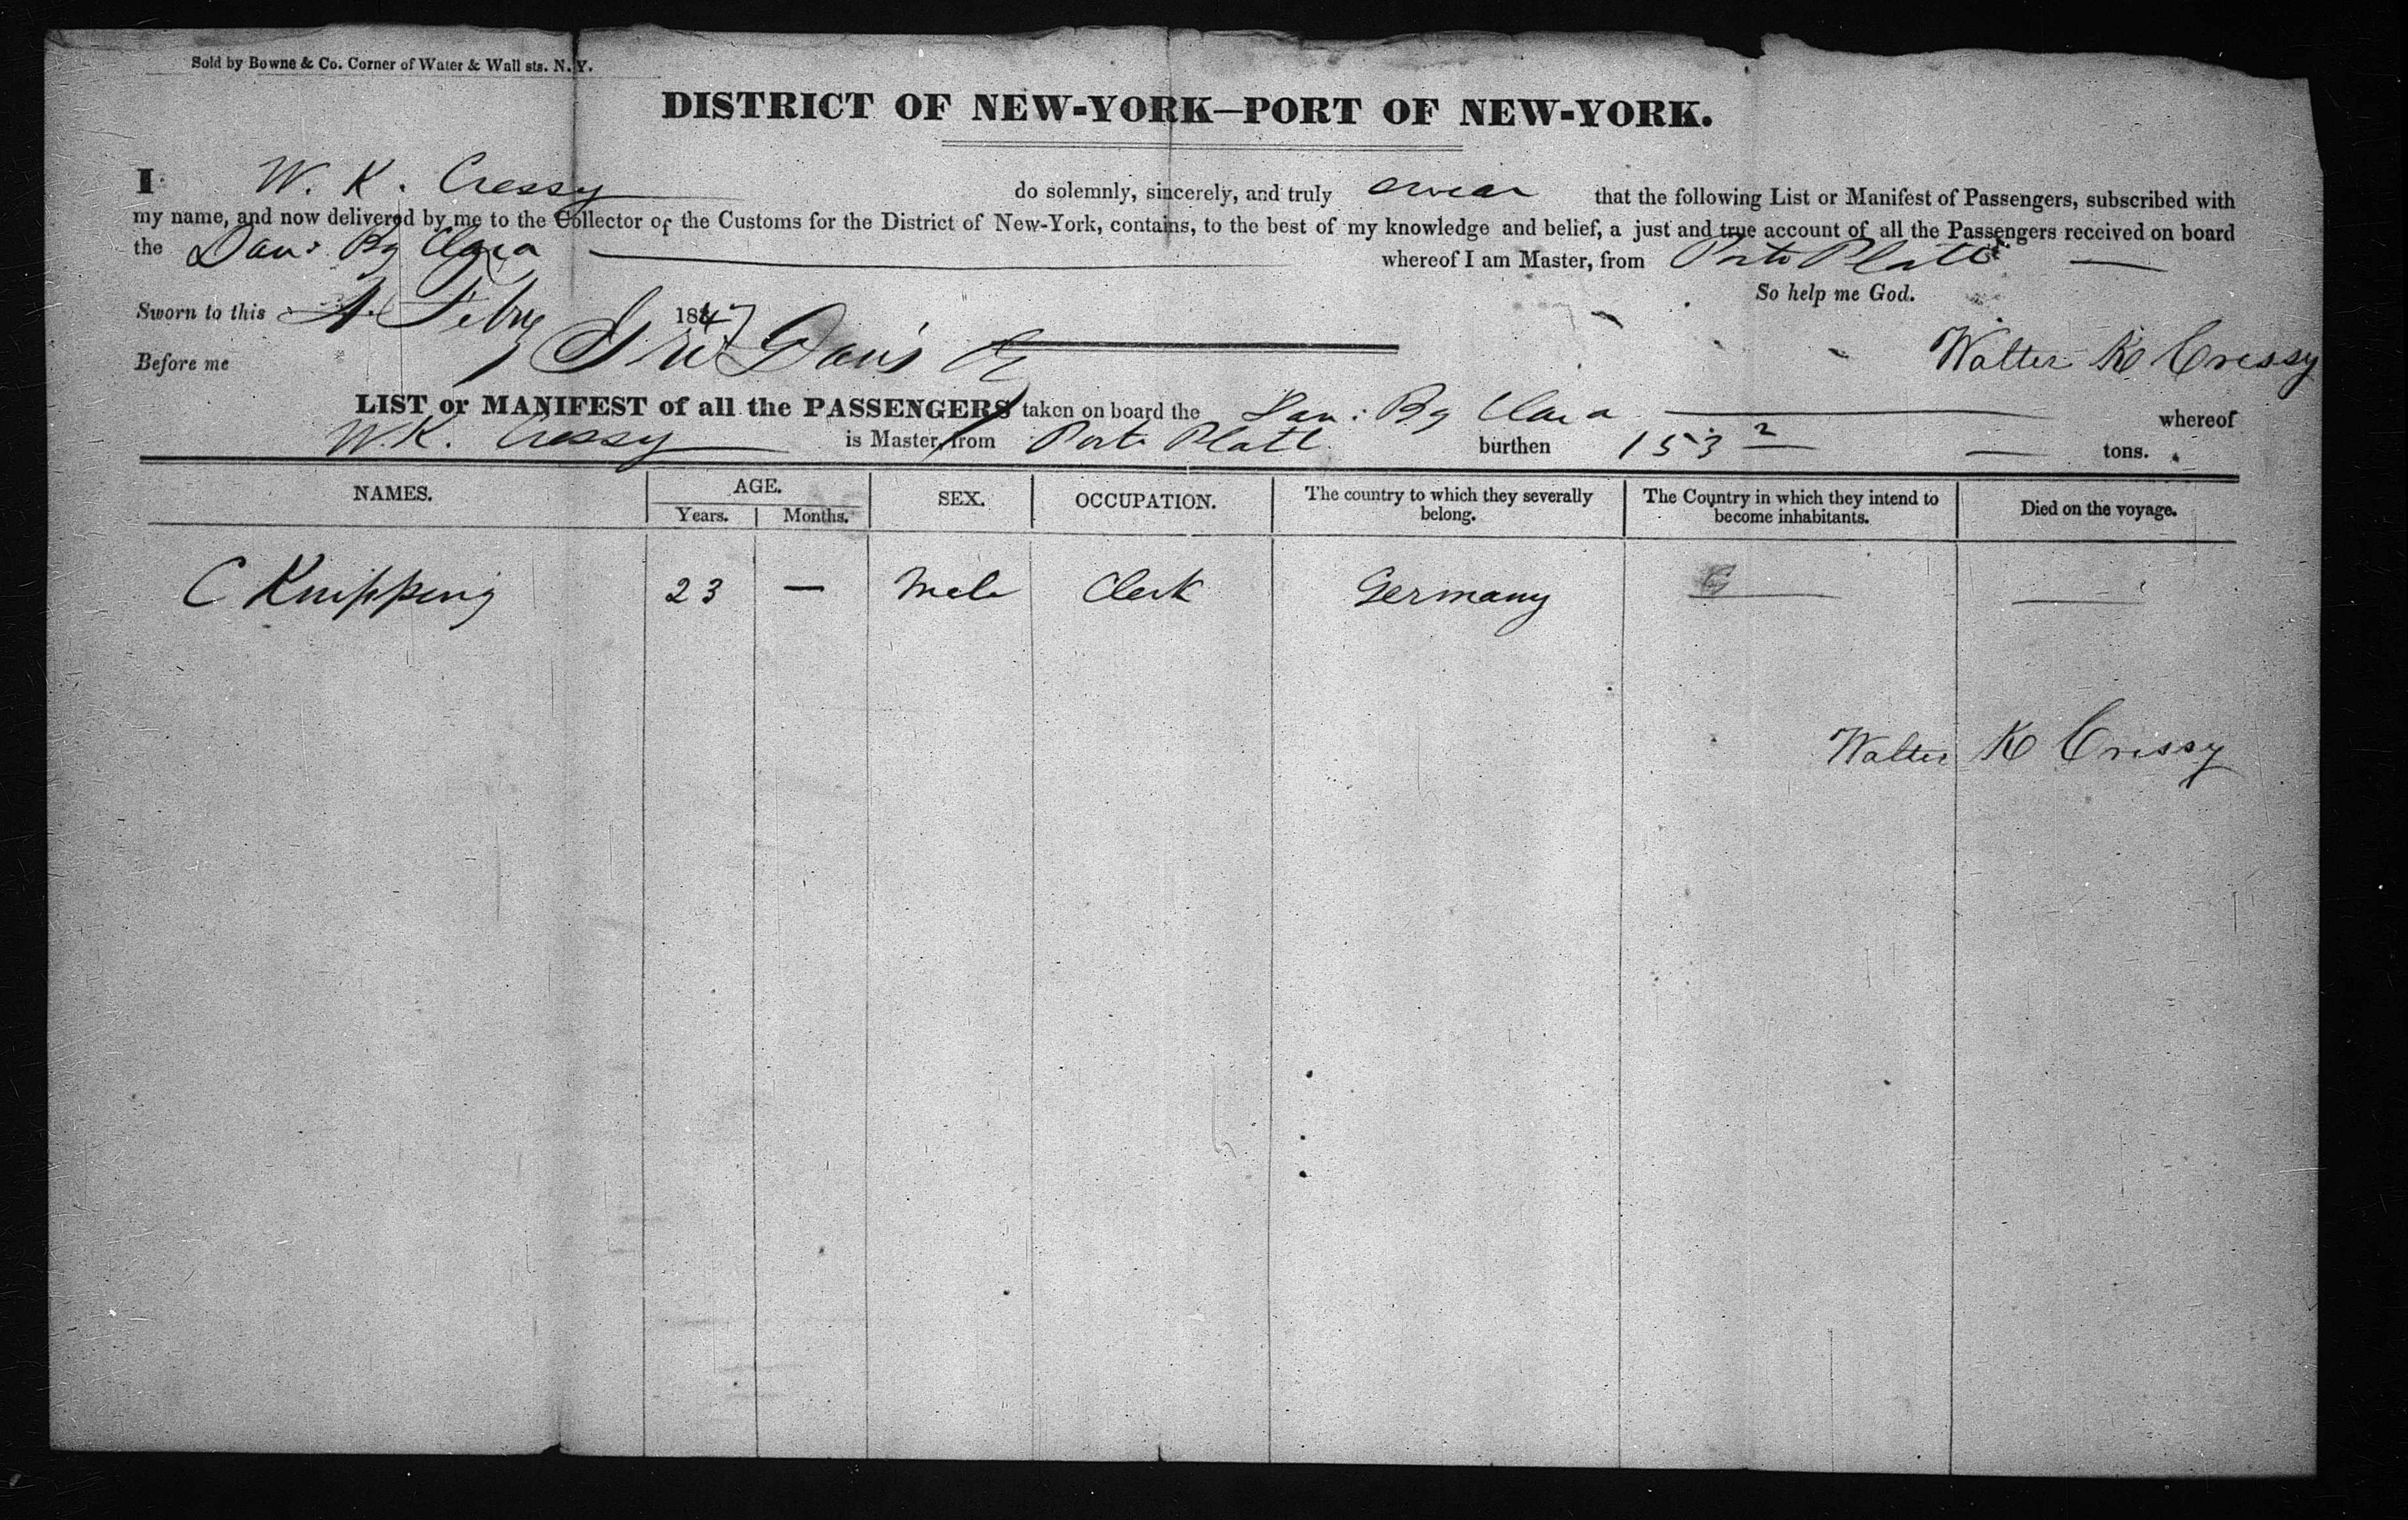 Sold by Bowne & Co. Corner of Water & Wall sts. N.Y.
DISTRICT OF NEW-YORK—PORT OF NEW-YORK.
I W. K. Cressy do solemnly, sincerely, and truly swear that the following List or Manifest of Passengers, subscribed with
my name, and now delivered by me to the Collector of the Customs for the District of New-York, contains, to the best of my knowledge and belief, a just and true account of all the Passengers received on board
the Dan: Bg Clara whereof I am Master, from Porto Platt
So help me God.
Sworn to this Feby 1847
Before me Walter K Cressy
LIST or MANIFEST of all the PASSENGERS taken on board the Dan: Bg Clara whereof
W. K. Cressy is Master, from Porto Platt burthen 153 2 tons.
NAMES. AGE. Years. Months. SEX. OCCUPATION. The country to which they severally belong. The Country in which they intend to become inhabitants. Died on the voyage.
C Knipping 23 — Male Clerk Germany
Walter K Cressy